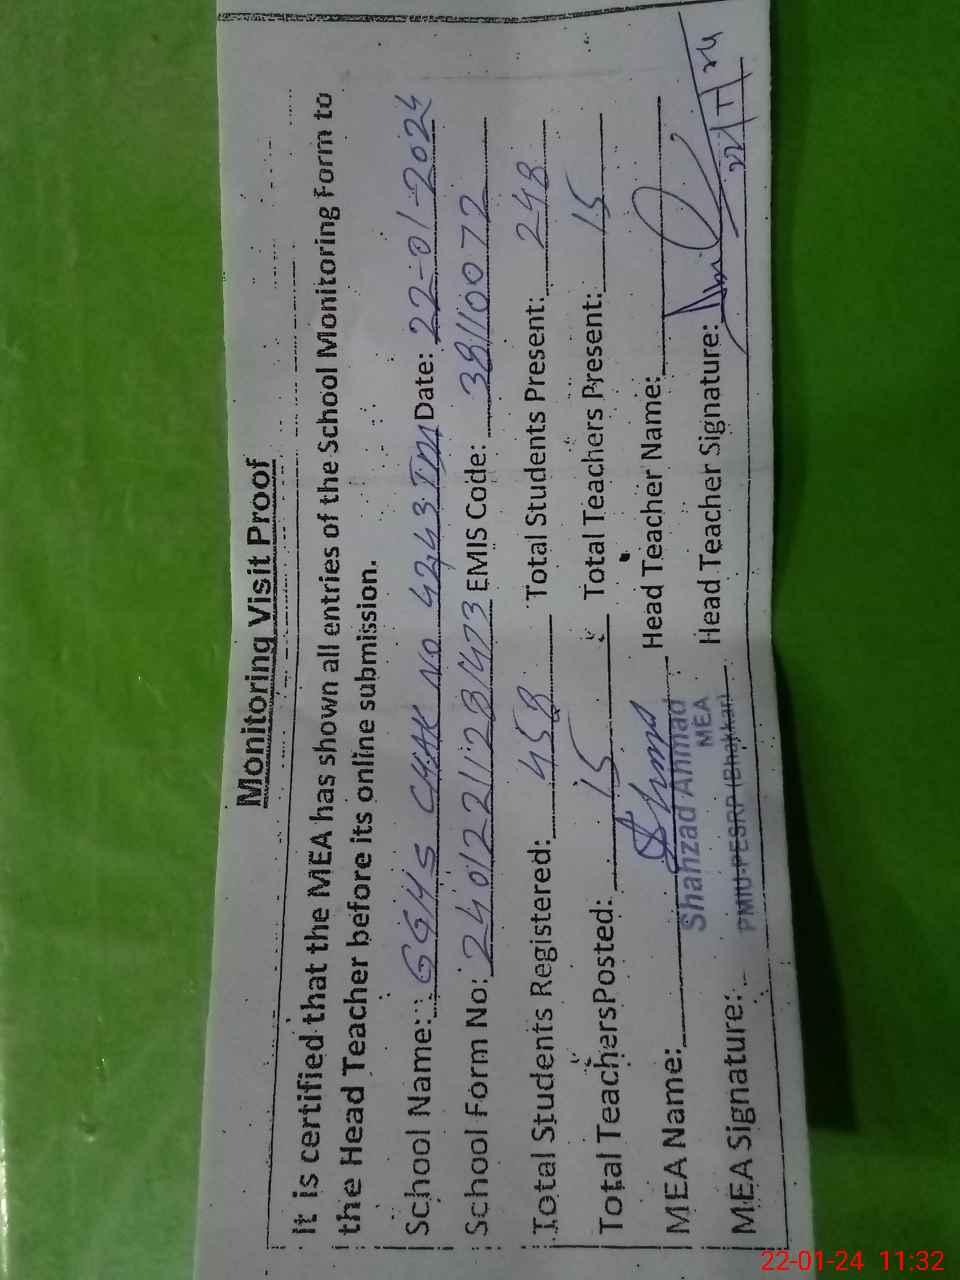 Monitoring Visit Proof
It is certified that the MEA has shown all entries of the School Monitoring Form to
the Head Teacher before its online submission.
School Name: GGHS CHAK No 42,43 TDA Date: 22-01-2024
School Form No: 240122112281473 EMIS Code: 38110072
Total Students Registered: 458 Total Students Present: 248
Total Teachers Posted: 15 Total Teachers Present: 15
MEA Name: Head Teacher Name:
Shahzad Ahmad
MEA
MEA Signature: Head Teacher Signature:
PMIU-PESRP (Bhakkar)
22/1/24
22-01-24 11:32